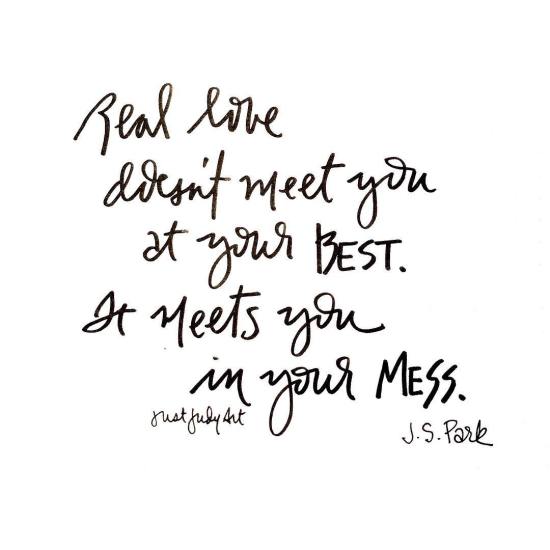 Real love
doesn't meet you
at your BEST.
It meets you
in your MESS.
JustJudyArt
J.S. Park